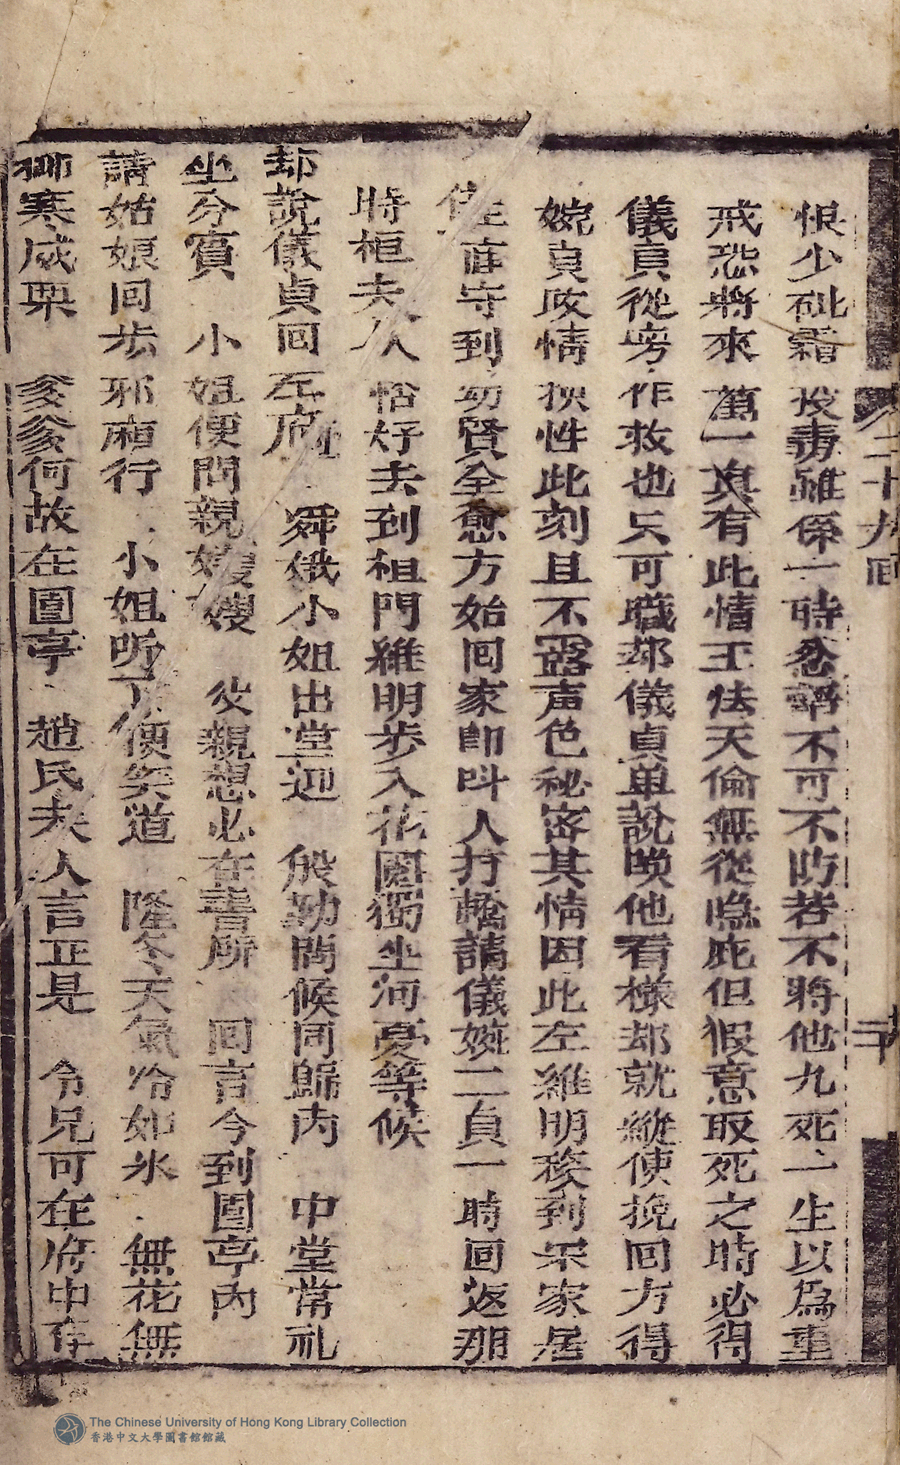 二十九回
恨少砒霜投毒雖係一時忿謂不可不防若不將他九死一生以為重
戒恐將來萬一真有此情王法天倫無從隱庇但假意取死之時必得
儀貞從旁作救也只可職却儀貞單說喚他看樣却就縱使挽回方得
婉貞改情換性此刻且不露声色秘密其情因此左維明移到宋家居
住直守到幼賢全愈方始回家即呌人打轎請儀婉二貞一時回返那
時桓夫人恰好去到祖門維明步入花園獨坐河憂等候
却說儀貞回左府 舜娥小姐出堂迎 般勤問候同歸內 中堂常礼
坐分賓 小姐便問親嫂嫂 父親想必在書所 回言今到園亭內
請姑娘回步那廂行 小姐听了便笑道 隆冬天氣冷如氷 無花無
柳寒成栗 爹爹何故在園亭 趙氏夫人言正是 令兄可在府中存
The Chinese University of Hong Kong Library Collection
香港中文大學圖書館館藏